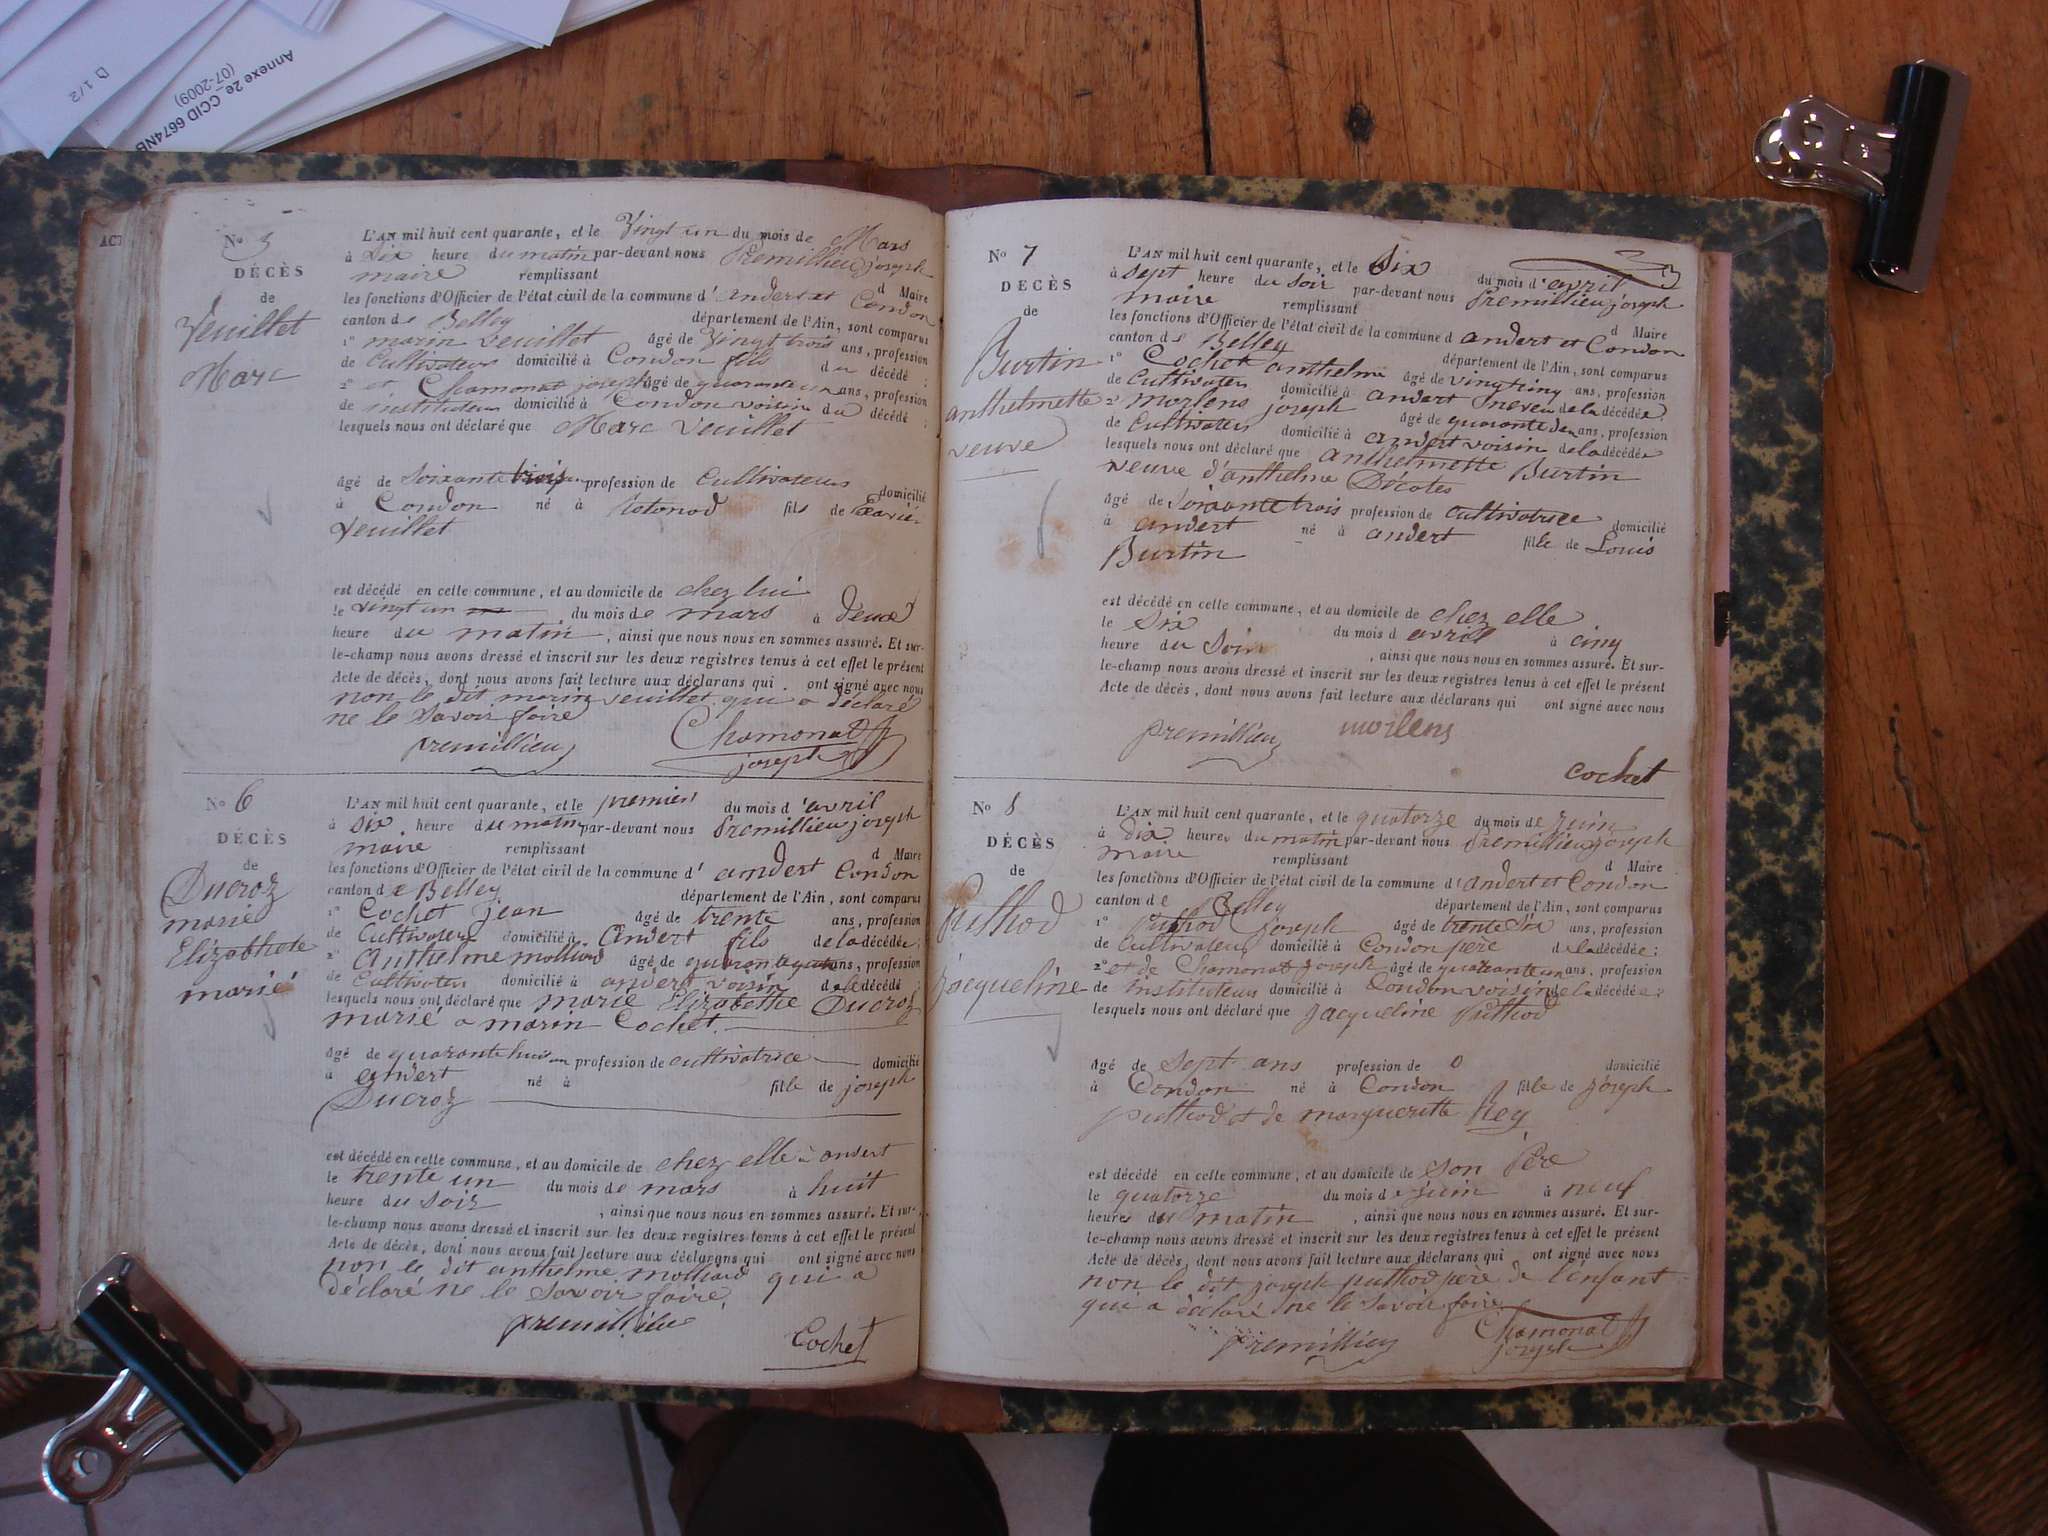 Annexe 2e CCID 6674NB
(07-2009)
D 1/2
ACT
No 5
DÉCÈS
de
Veuillet
Marc
L'AN mil huit cent quarante, et le Vingt un du mois de Mars
à Dix heure du matin par-devant nous Premillieu joseph
maire remplissant d Maire
les fonctions d'Officier de l'état civil de la commune d' andert et Condon
canton de Belley département de l'Ain, sont comparus
1° marin Veuillet âgé de Vingt trois ans, profession
de Cultivateur domicilié à Condon fils du décédé ;
2° et Chamonat joseph âgé de quarante un ans, profession
de instituteur domicilié à Condon voisin du décédé ;
lesquels nous ont déclaré que Marc Veuillet
âgé de Soixante trois profession de Cultivateur domicilié
à Condon né à Lotonod fils de Xavier
Veuillet
est décédé en cette commune, et au domicile de chez lui
le vingt un du mois de mars à Deux
heure du matin, ainsi que nous nous en sommes assuré. Et sur-
le-champ nous avons dressé et inscrit sur les deux registres tenus à cet effet le présent
Acte de décès, dont nous avons fait lecture aux déclarans qui ont signé avec nous
non le dit marin veuillet qui a déclaré
ne le Savoir faire
premillieu Chamonat
joseph
No 6
DÉCÈS
de
Ducroz
marie
Elizabhete
marié
L'AN mil huit cent quarante, et le premier du mois d'avril
à six heure du matin par-devant nous Premillieu joseph
maire remplissant d Maire
les fonctions d'Officier de l'état civil de la commune d' andert Condon
canton de Belley département de l'Ain, sont comparus
1° Cochet jean âgé de trente ans, profession
de Cultivateur domicilié à Andert fils de la décédée ;
2° Anthelme molliard âgé de quarante ans, profession
de Cultivateur domicilié à andert voisin de la décédé ;
lesquels nous ont déclaré que marie Elizabethe Ducroz
marié a marin Cochet
âgé de quarante huit an profession de cultivatrice domicilié
à andert né à fille de joseph
Ducroz
est décédé en cette commune, et au domicile de chez elle à andert
le trente un du mois de mars à huit
heure du soir, ainsi que nous nous en sommes assuré. Et sur-
le-champ nous avons dressé et inscrit sur les deux registres tenus à cet effet le présent
Acte de décès, dont nous avons fait lecture aux déclarans qui ont signé avec nous
non le dit anthelme molliard qui a
déclaré ne le savoir faire
premillieu Cochet
No 7
DÉCÈS
de
Burtin
anthelmette
veuve
L'AN mil huit cent quarante, et le Six du mois d'avril
à sept heure du soir par-devant nous Premillieu joseph
maire remplissant d Maire
les fonctions d'Officier de l'état civil de la commune d andert et Condon
canton de Belley département de l'Ain, sont comparus
1° Cochet anthelme âgé de vingt cinq ans, profession
de Cultivateur domicilié à andert neveu de la décédée ;
2° morlens joseph âgé de quarante deux ans, profession
de Cultivateur domicilié à andert voisin de la décédée
lesquels nous ont déclaré que anthelmette Burtin
veuve d'anthelme Décotes
âgé de Soixante trois profession de cultivatrice domicilié
à andert né à andert fille de Louis
Burtin
est décédé en cette commune, et au domicile de chez elle
le Six du mois d avril à cinq
heure du Soir, ainsi que nous nous en sommes assuré. Et sur-
le-champ nous avons dressé et inscrit sur les deux registres tenus à cet effet le présent
Acte de décès, dont nous avons fait lecture aux déclarans qui ont signé avec nous
premillieu morlens
cochet
No 8
DÉCÈS
de
Puthod
jacqueline
L'AN mil huit cent quarante, et le quatorze du mois de juin
à dix heures du matin par-devant nous Premillieu joseph
maire remplissant d Maire
les fonctions d'Officier de l'état civil de la commune d'andert et Condon
canton de Belley département de l'Ain, sont comparus
1° Puthod joseph âgé de trente six ans, profession
de Cultivateur domicilié à Condon père de la décédée ;
2° et de Chamonat joseph âgé de quarante un ans, profession
de instituteur domicilié à Condon voisin de la décédée ;
lesquels nous ont déclaré que jacqueline Puthod
âgé de Sept ans profession de 0 domicilié
à Condon né à Condon fille de joseph
puthod et de marguerite Rey
est décédé en cette commune, et au domicile de son Père
le quatorze du mois de juin à neuf
heures du matin, ainsi que nous nous en sommes assuré. Et sur-
le-champ nous avons dressé et inscrit sur les deux registres tenus à cet effet le présent
Acte de décès, dont nous avons fait lecture aux déclarans qui ont signé avec nous
non le dit joseph puthod père de l'enfant
qui a déclaré ne le savoir faire
premillieu Chamonat
joseph